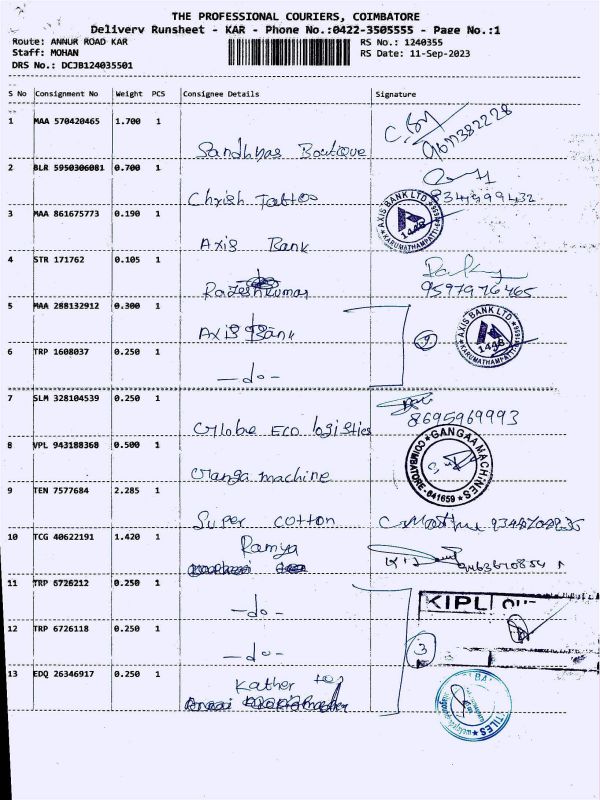 THE PROFESSIONAL COURIERS, COIMBATORE
Delivery Runsheet - KAR - Phone No.:0422-3505555 - Page No.:1
Route: ANNUR ROAD KAR RS No.: 1240355
Staff: MOHAN RS Date: 11-Sep-2023
DRS No.: DCJB124035501
S No Consignment No Weight PCS Consignee Details Signature
1 MAA 570420465 1.700 1
Sandhyas Boutique
2 BLR 5950306081 0.700 1
Chrish Tattoo
3 MAA 861675773 0.190 1
AXIS BANK LTD 1448 KARUMATHAMPATTI
Axis Bank
4 STR 171762 0.105 1
Rajeshkumar 9597976465
5 MAA 288132912 0.300 1
Axis Bank
2 AXIS BANK LTD 1448 KARUMATHAMPATTI
6 TRP 1608037 0.250 1
-do-
7 SLM 328104539 0.250 1
Globe ECO logistics 8695969993
8 VPL 943188368 0.500 1
GANGAA MACHINES COIMBATORE-641659
Ganga machine
9 TEN 7577684 2.285 1
Super cotton
10 TCG 40622191 1.420 1
Ramya
11 TRP 6726212 0.250 1
-do-
KIPL
12 TRP 6726118 0.250 1
-do-
3
13 EDQ 26346917 0.250 1
Kather
TILES